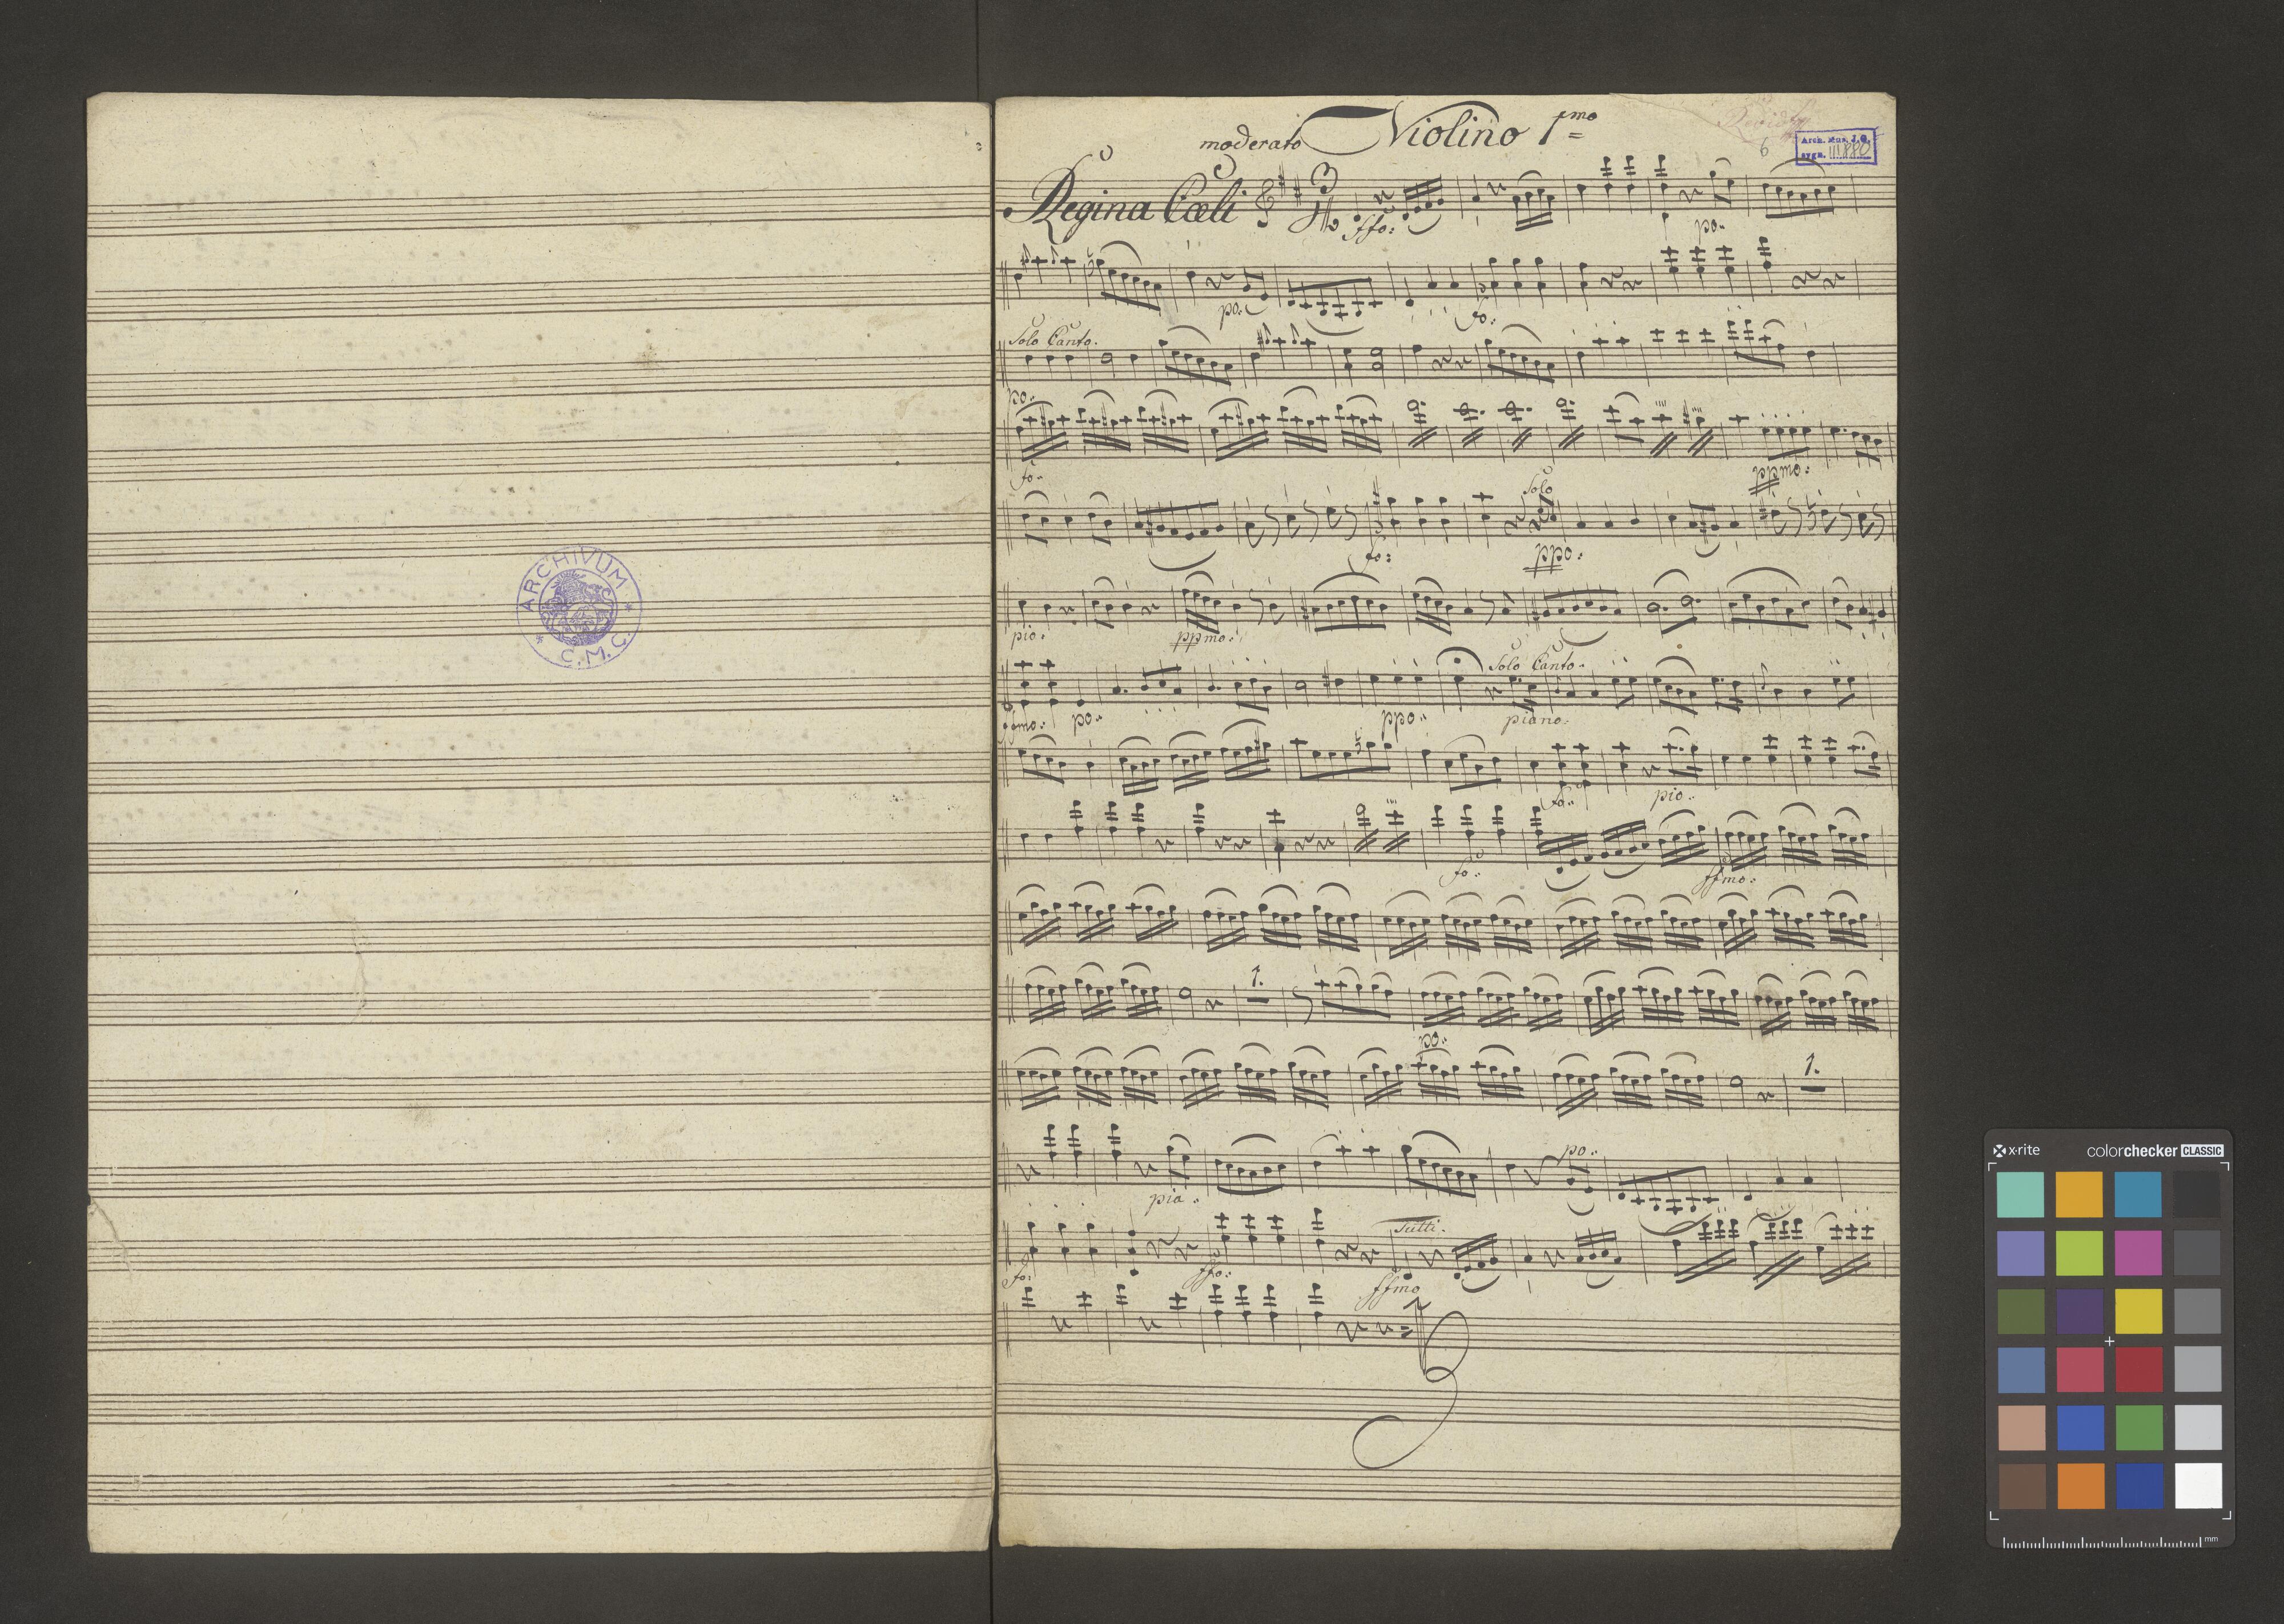 moderato Violino 1mo
6
Arch. Mus. J. G.
sygn. III 880
Regina Cæli
ffo:
po.
po:
fo:
Solo Canto.
po:
fo:
ppmo:
Solo
fo:
ppo:
pio:
ppmo:
Solo Canto.
po:
ppo:
piano:
fo:
pio:
fo:
ffmo:
1.
po:
1.
po:
pia:
Tutti.
fo:
ffo:
ffmo
ARCHIVUM
C.M.C.
x-rite colorchecker CLASSIC
mm